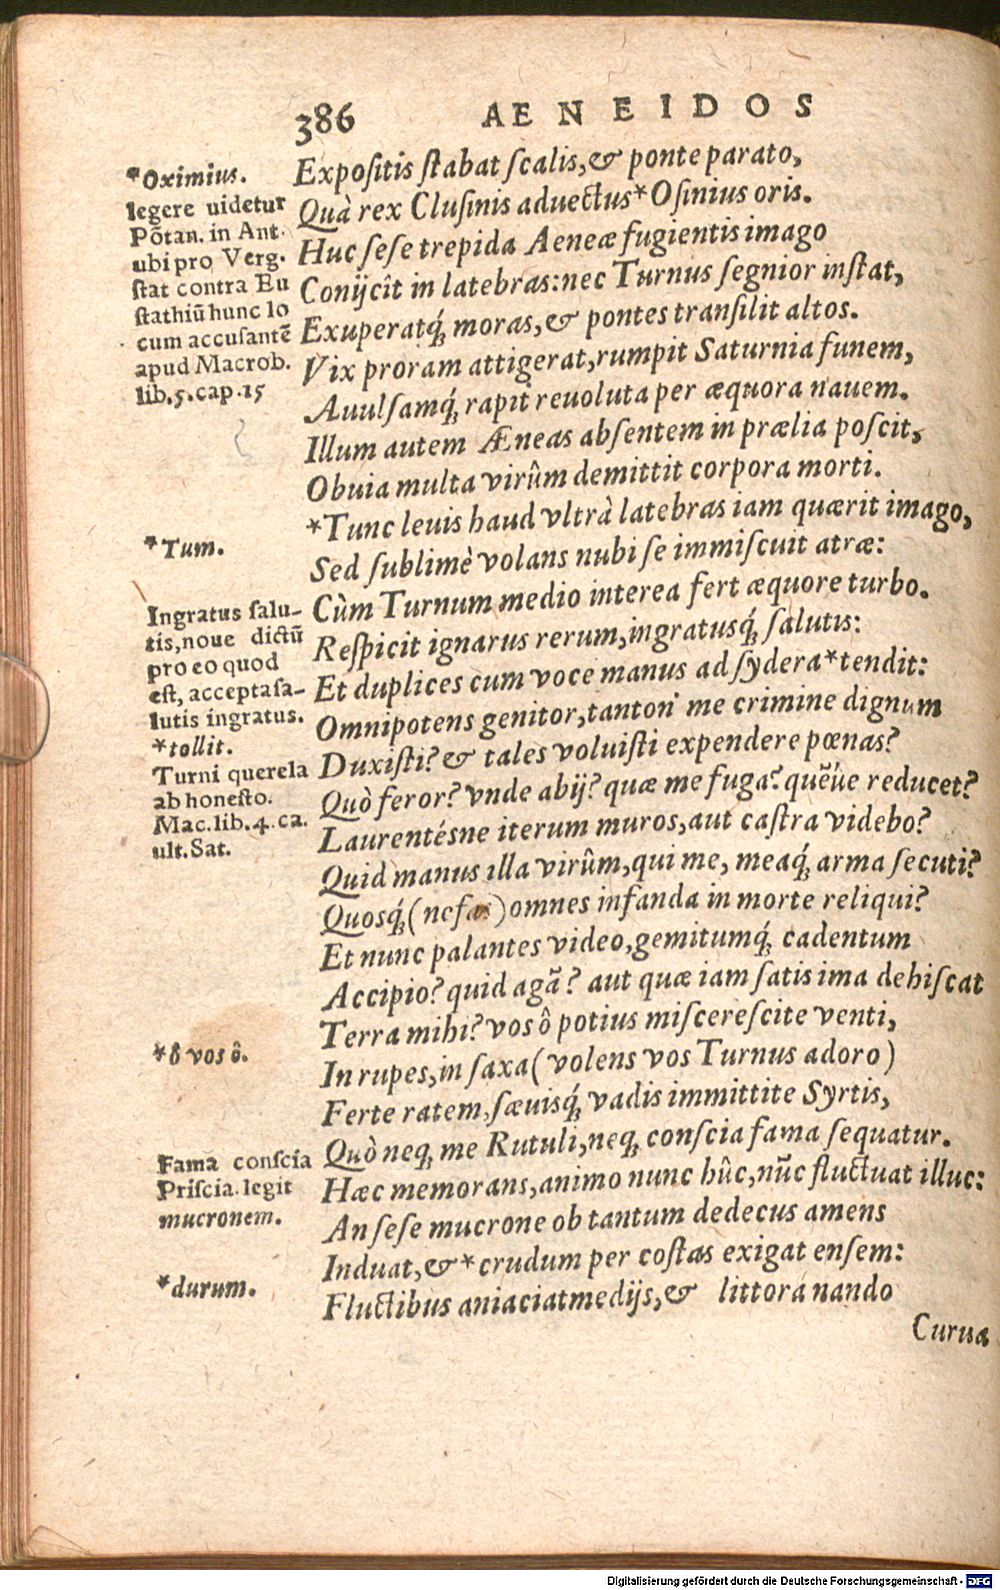 386 AENEIDOS
Expositis ſtabat ſcalis,& ponte parato,
Quà rex Cluſinis aduectus*Oſinius oris.
Huc ſeſe trepida Aeneæ fugientis imago
Conijcit in latebras: nec Turnus ſegnior inſtat,
Exuperatq́; moras,& pontes tranſilit altos.
Vix proram attigerat,rumpit Saturnia funem,
Auulſamq́; rapit reuoluta per æquora nauem.
Illum autem Æneas abſentem in prælia poſcit,
Obuia multa virûm demittit corpora morti.
*Tunc leuis haud vltrà latebras iam quærit imago,
Sed ſublimè volans nubi ſe immiſcuit atræ:
Cùm Turnum medio interea fert æquore turbo.
Reſpicit ignarus rerum,ingratusq́; ſalutis:
Et duplices cum voce manus ad ſydera*tendit:
Omnipotens genitor,tanton' me crimine dignum
Duxiſti?& tales voluiſti expendere pœnas?
Quò feror? vnde abij? quæ me fuga? quẽúe reducet?
Laurentésne iterum muros,aut caſtra videbo?
Quid manus illa virûm,qui me, meaq́; arma ſecuti?
Quosq́;(nefas)omnes infanda in morte reliqui?
Et nunc palantes video,gemitumq́; cadentum
Accipio? quid agã? aut quæ iam ſatis ima dehiſcat
Terra mihi? vos ô potius miſcereſcite venti,
In rupes,in ſaxa(volens vos Turnus adoro)
Ferte ratem,ſæuisq́; vadis immittite Syrtis,
Quò neq; me Rutuli,neq; conſcia fama ſequatur.
Hæc memorans,animo nunc hûc,nũc fluctuat illuc:
An ſeſe mucrone ob tantum dedecus amens
Induat,&*crudum per coſtas exigat enſem:
Fluctibus aniaciatmedijs,& littora nando
Curua
*Oximius.
legere uidetur
Põtan. in Ant.
ubi pro Verg.
ſtat contra Eu
ſtathiũ hunc lo
cum accuſantẽ
apud Macrob.
lib.5.cap.15
*Tum.
Ingratus ſalu-
tis,noue dictũ
pro eo quod
eſt, accepta ſa-
lutis ingratus.
*tollit.
Turni querela
ab honeſto.
Mac.lib.4.ca.
ult.Sat.
*ô vos ô.
Fama conſcia
Priſcia.legit
mucronem.
*durum.
Digitalisierung gefördert durch die Deutsche Forschungsgemeinschaft - DFG